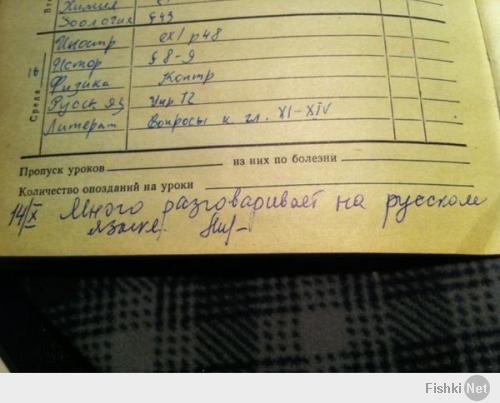 Химия
Зоология §43
Иностр ex1 p48
Среда 16
Истор § 8-9
Физика Контр
Русск яз Упр 12
Литерат Вопросы к гл. XI-XIV
Пропуск уроков из них по болезни
Количество опозданий на уроки
14/X Много разговаривает на русском
языке.
Fishki.Net